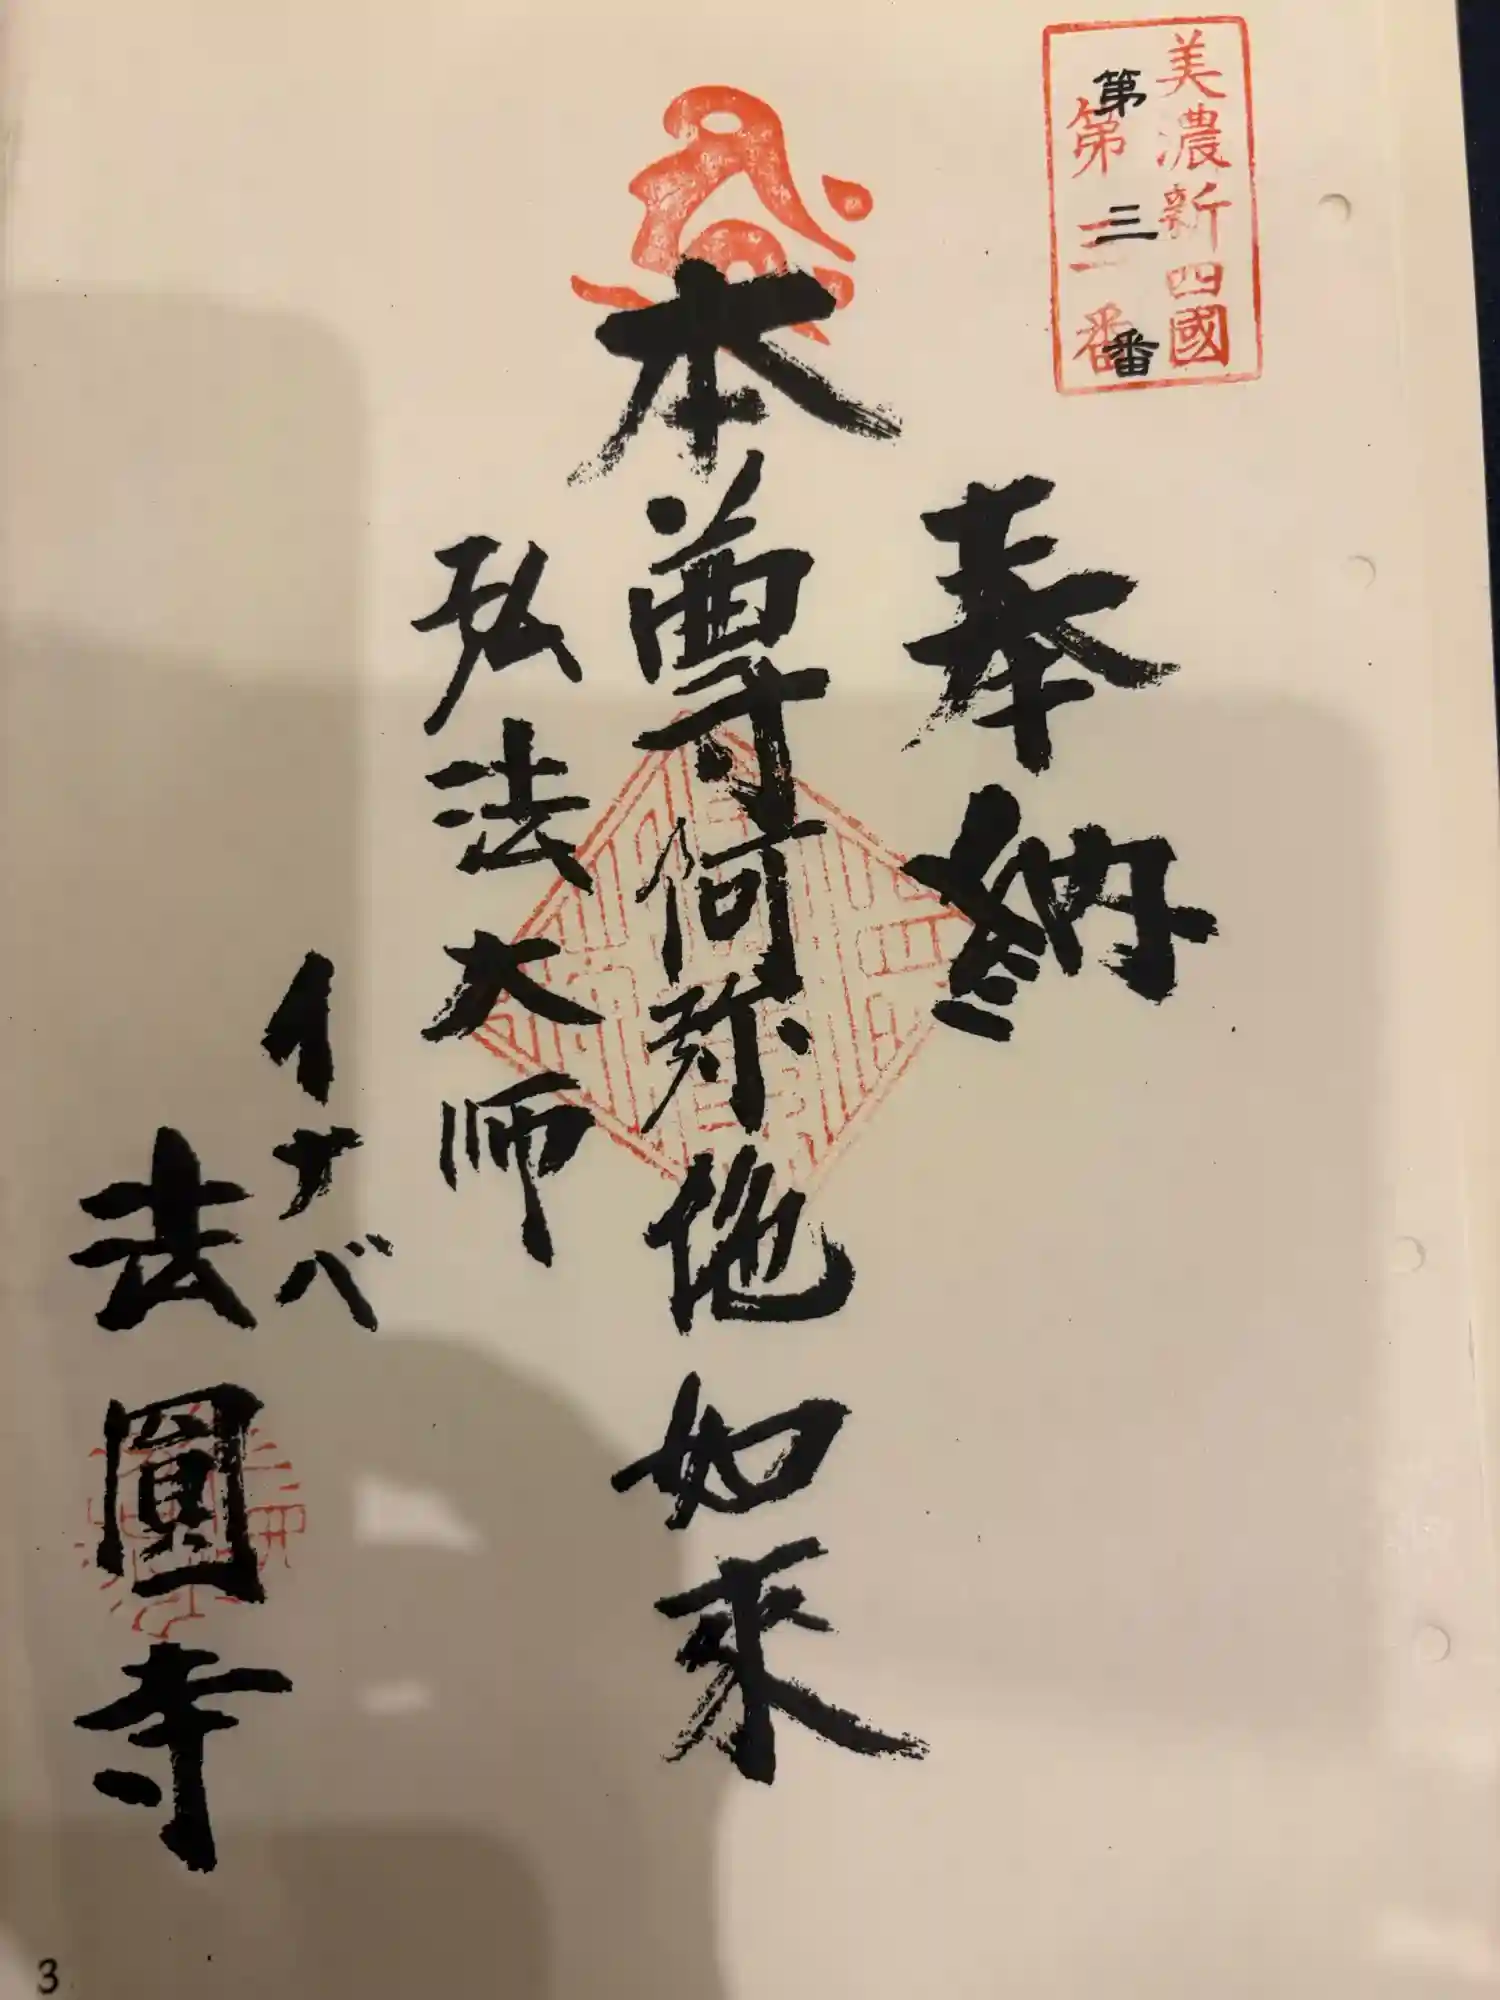 美濃新四國
第三番
第三番
奉納
本尊阿弥他如来
弘法大师
イナベ
法圓寺
3